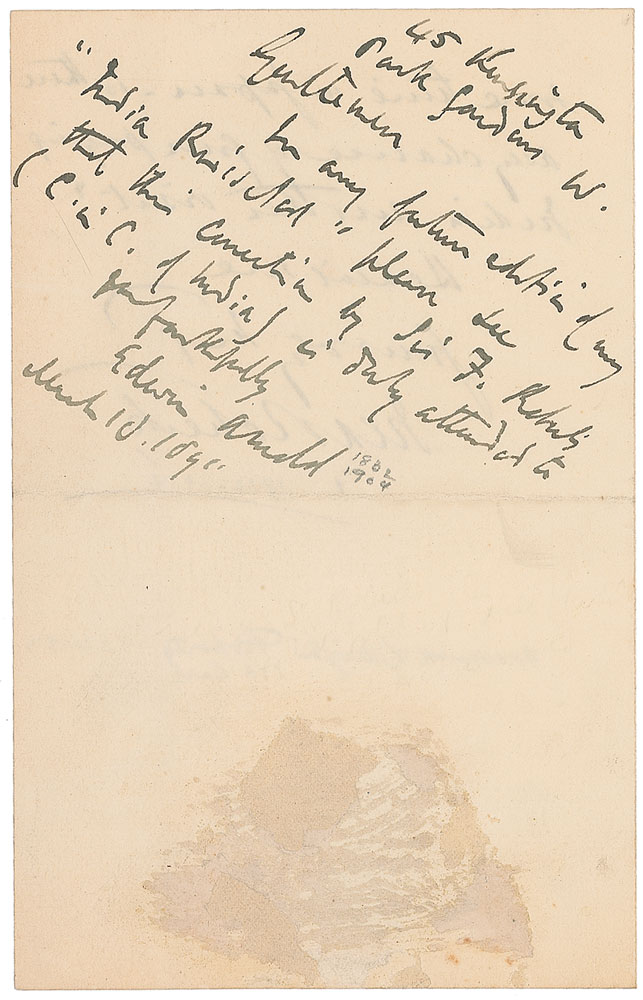 45 Kensington
Park Gardens W.
Gentlemen
In any future edition of my
"India Revisited" please see
that this correction by Sir F. Roberts
(C. in C. of India) is duly attended to
Yours faithfully
Edwin Arnold
March 10. 189
1832
1904